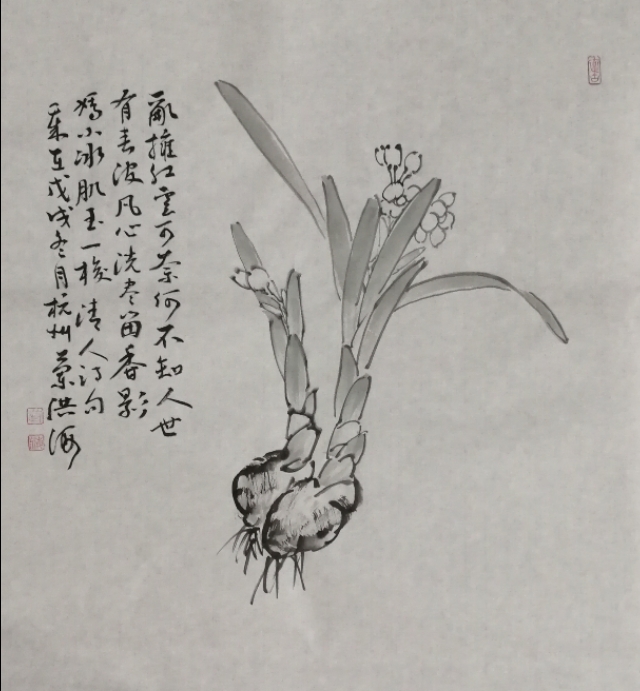 亂擁红雲可奈何不知人世
有春波凡心洗尽留香影
嬌小冰肌玉一梭清人诗句
在戊戌冬月杭州洪海